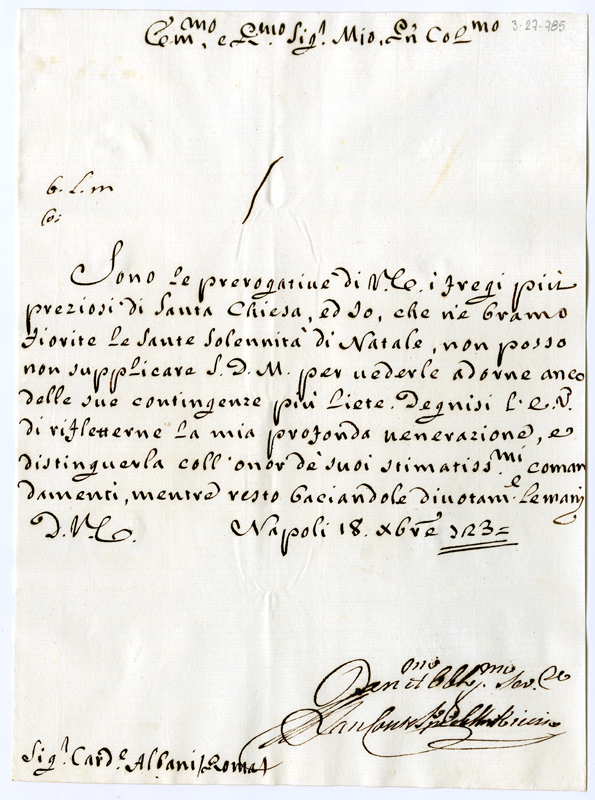 Em.mo, e R.mo Sig.r Mio, Pñ Col.mo
3-27-785
b. l. m
Sono le prerogative di V.E. i fregi più
preziosi di Santa Chiesa, ed Io, che ne bramo
fiorite le sante solennità di Natale, non posso
non supplicare S. D. M. per vederle adorne anco
delle sue contingenze più liete. Degnisi l'E.V.
di rifletterne la mia profonda venerazione, e
distinguerla coll'onor de suoi stimatiss.mi coman
damenti, mentre resto baciandole divotam.e le mani
D.V.E. Napoli 18. Xbre 723=
Oblig.mo Ser.e
Sig.r Card.e Albani/Roma/